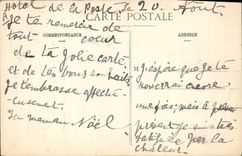 Hôtel de la Poste le 20 Aout.
CARTE POSTALE
Je te remercie de
CORRESPONDANCE
tout coeur
de ta Jolie carte
et de tes bons souhaits
Je t'embrasse affectu-
eusement.
ta maman Noël
ADRESSE
J'espère que je te
reverrai encore
une fois, mais à
présent je suis très
fatiguée par la
chaleur.